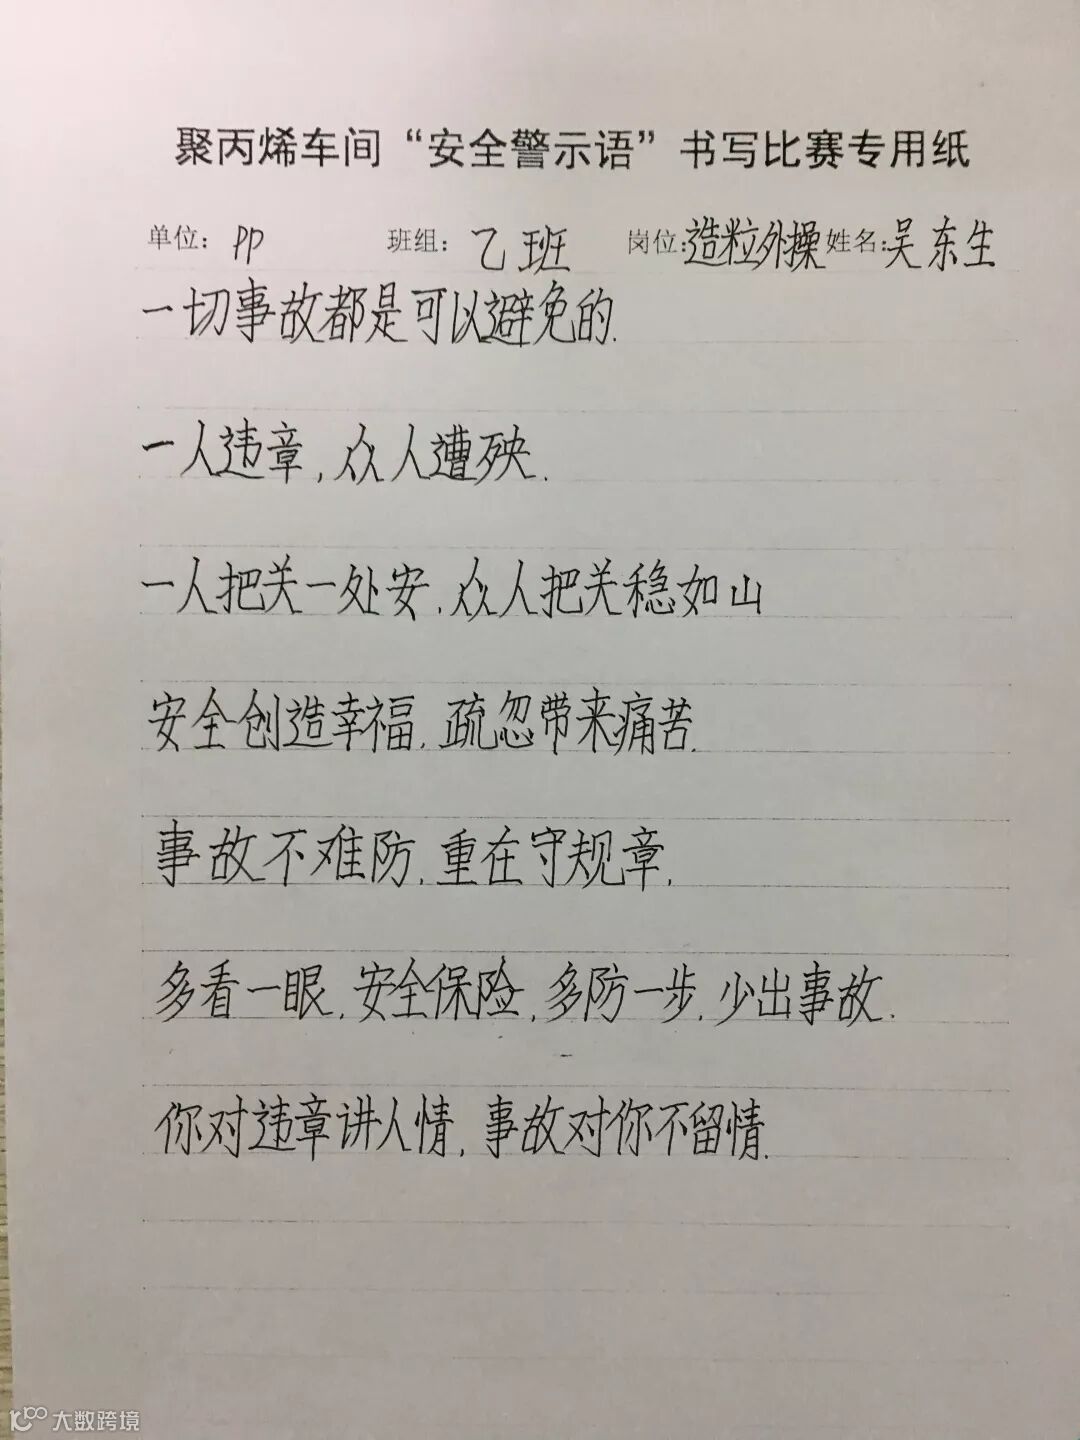 聚丙烯车间“安全警示语”书写比赛专用纸
单位：PP 班组：乙班 岗位：造粒外操 姓名：吴东生
一切事故都是可以避免的.
一人违章,众人遭殃.
一人把关一处安,众人把关稳如山
安全创造幸福,疏忽带来痛苦.
事故不难防,重在守规章.
多看一眼,安全保险,多防一步,少出事故.
你对违章讲人情,事故对你不留情.
大数跨境